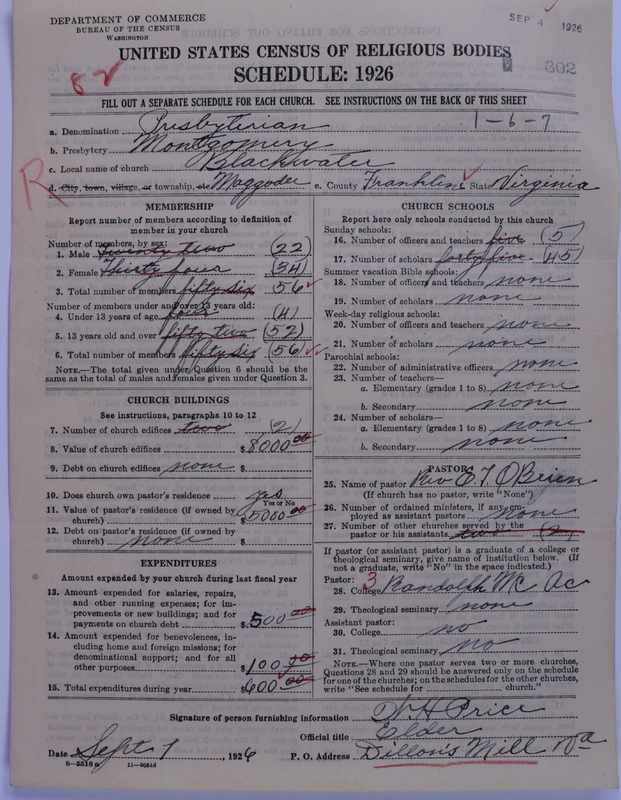 DEPARTMENT OF COMMERCE
BUREAU OF THE CENSUS
WASHINGTON
SEP 4 1926
82
UNITED STATES CENSUS OF RELIGIOUS BODIES
SCHEDULE: 1926
302
FILL OUT A SEPARATE SCHEDULE FOR EACH CHURCH. SEE INSTRUCTIONS ON THE BACK OF THIS SHEET
1-6-7
a. Denomination Presbyterian
b. Presbytery Montgomery
c. Local name of church Blackwater
R
d. City, town, village, or township, etc. Maggodee e. County Franklin State Virginia
MEMBERSHIP
Report number of members according to definition of
member in your church
Number of members, by sex:
1. Male twenty two (22)
2. Female Thirty four (34)
3. Total number of members fifty six 56
Number of members under and over 13 years old:
4. Under 13 years of age four (4)
5. 13 years old and over fifty two (52)
6. Total number of members fifty six (56)
NOTE.—The total given under Question 6 should be the
same as the total of males and females given under Question 3.
CHURCH BUILDINGS
See instructions, paragraphs 10 to 12
7. Number of church edifices two (2)
8. Value of church edifices $8000.00
9. Debt on church edifices none $
10. Does church own pastor's residence yes
Yes or No
11. Value of pastor's residence (if owned by
church) $5000.00
12. Debt on pastor's residence (if owned by
church) none $
EXPENDITURES
Amount expended by your church during last fiscal year
13. Amount expended for salaries, repairs,
and other running expenses; for im-
provements or new buildings; and for
payments on church debt $500.00
14. Amount expended for benevolences, in-
cluding home and foreign missions; for
denominational support; and for all
other purposes $100.00
15. Total expenditures during year $600.00
CHURCH SCHOOLS
Report here only schools conducted by this church
Sunday schools:
16. Number of officers and teachers five (5)
17. Number of scholars forty five (45)
Summer vacation Bible schools:
18. Number of officers and teachers none
19. Number of scholars none
Week-day religious schools:
20. Number of officers and teachers none
21. Number of scholars none
Parochial schools:
22. Number of administrative officers none
23. Number of teachers—
a. Elementary (grades 1 to 8) none
b. Secondary none
24. Number of scholars—
a. Elementary (grades 1 to 8) none
b. Secondary none
PASTOR
25. Name of pastor Rev E. T. O'Brien
(If church has no pastor, write "None")
26. Number of ordained ministers, if any, em-
ployed as assistant pastors none
27. Number of other churches served by the
pastor or his assistants two (2)
If pastor (or assistant pastor) is a graduate of a college or
theological seminary, give name of institution below. (If
not a graduate, write "No" in the space indicated.)
Pastor: 3
28. College Randolph Mc Ac
29. Theological seminary none
Assistant pastor:
30. College no
31. Theological seminary No
NOTE.—Where one pastor serves two or more churches,
Questions 28 and 29 should be answered only on the schedule
for one of the churches; on the schedules for the other churches,
write "See schedule for church."
Signature of person furnishing information W H Price
Official title Elder
Date Sept 1, 1926 P. O. Address Dillons Mill Va
8—5518a 11—9054d